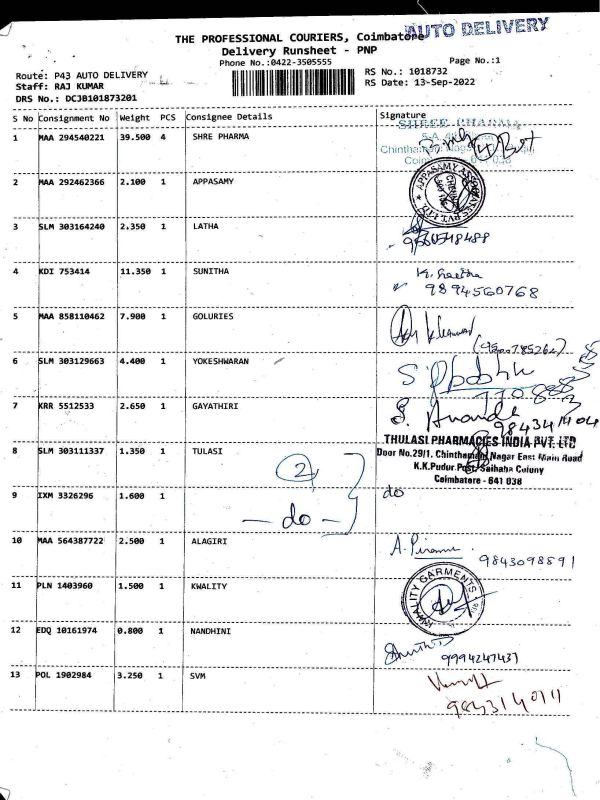 AUTO DELIVERY
THE PROFESSIONAL COURIERS, Coimbatore
Delivery Runsheet - PNP
Phone No.:0422-3505555
Page No.:1
Route: P43 AUTO DELIVERY
RS No.: 1018732
Staff: RAJ KUMAR
RS Date: 13-Sep-2022
DRS No.: DCJB101873201
S No Consignment No Weight PCS Consignee Details Signature
1 MAA 294540221 39.500 4 SHRE PHARMA
2 MAA 292462366 2.100 1 APPASAMY
3 SLM 303164240 2.350 1 LATHA
4 KDI 753414 11.350 1 SUNITHA
9894560768
5 MAA 858110462 7.900 1 GOLURIES
6 SLM 303129663 4.400 1 YOKESHWARAN
7 KRR 5512533 2.650 1 GAYATHIRI
THULASI PHARMACIES INDIA PVT. LTD
8 SLM 303111337 1.350 1 TULASI
Door No.29/1. Chinthamani Nagar East Main Road
K.K.Pudur Post, Saibaba Colony
Coimbatore - 641 038
2
9 IXM 3326296 1.600 1
do
- do -
10 MAA 564387722 2.500 1 ALAGIRI
9843098891
11 PLN 1403960 1.500 1 KWALITY
KWALITY GARMENTS
12 EDQ 10161974 0.800 1 NANDHINI
9994247437
13 POL 1902984 3.250 1 SVM